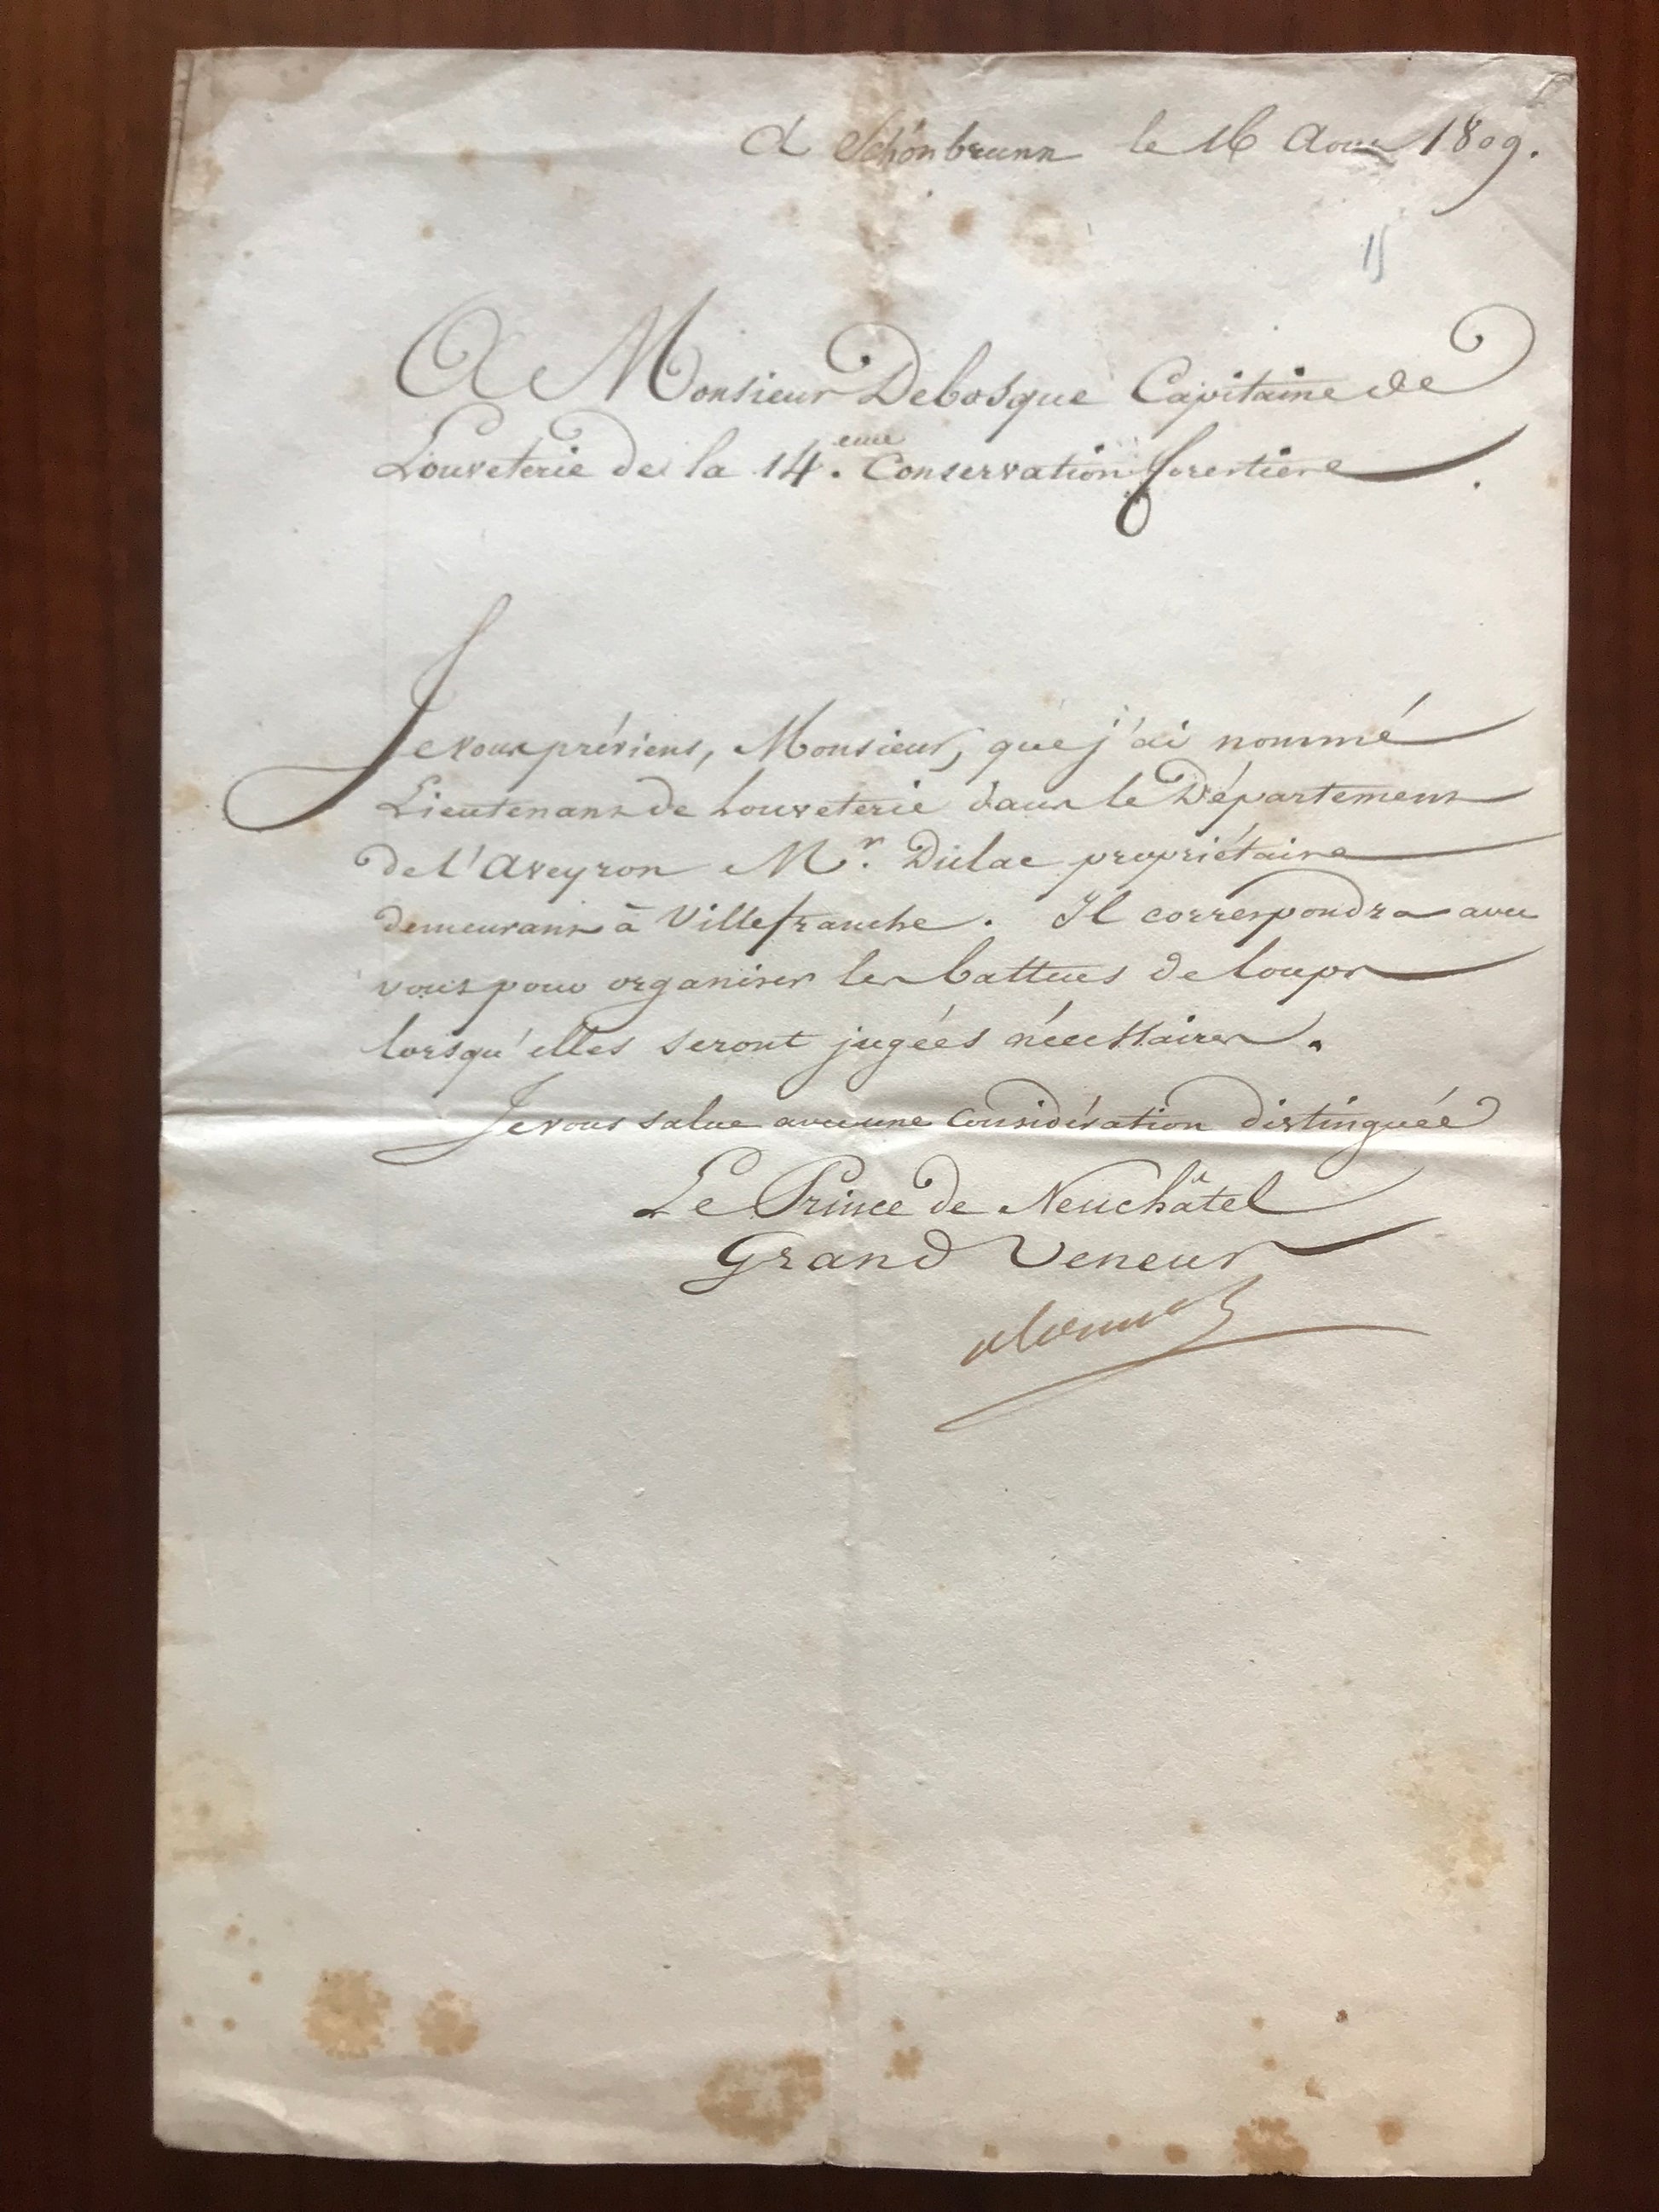 A Schönbrunn le 16 Aout 1809.
15
A Monsieur Debosque Capitaine de
Louveterie de la 14.eme Conservation forestière.
Je vous préviens, Monsieur, que j'ai nommé
Lieutenant de Louveterie dans le Département
de l'Aveyron Mr. Dulac propriétaire
demeurant à Villefranche. Il correspondra avec
vous pour organiser les battues de loups
lorsqu'elles seront jugées nécessaires.
Je vous salue avec une considération distinguée
Le Prince de Neuchâtel
Grand Veneur